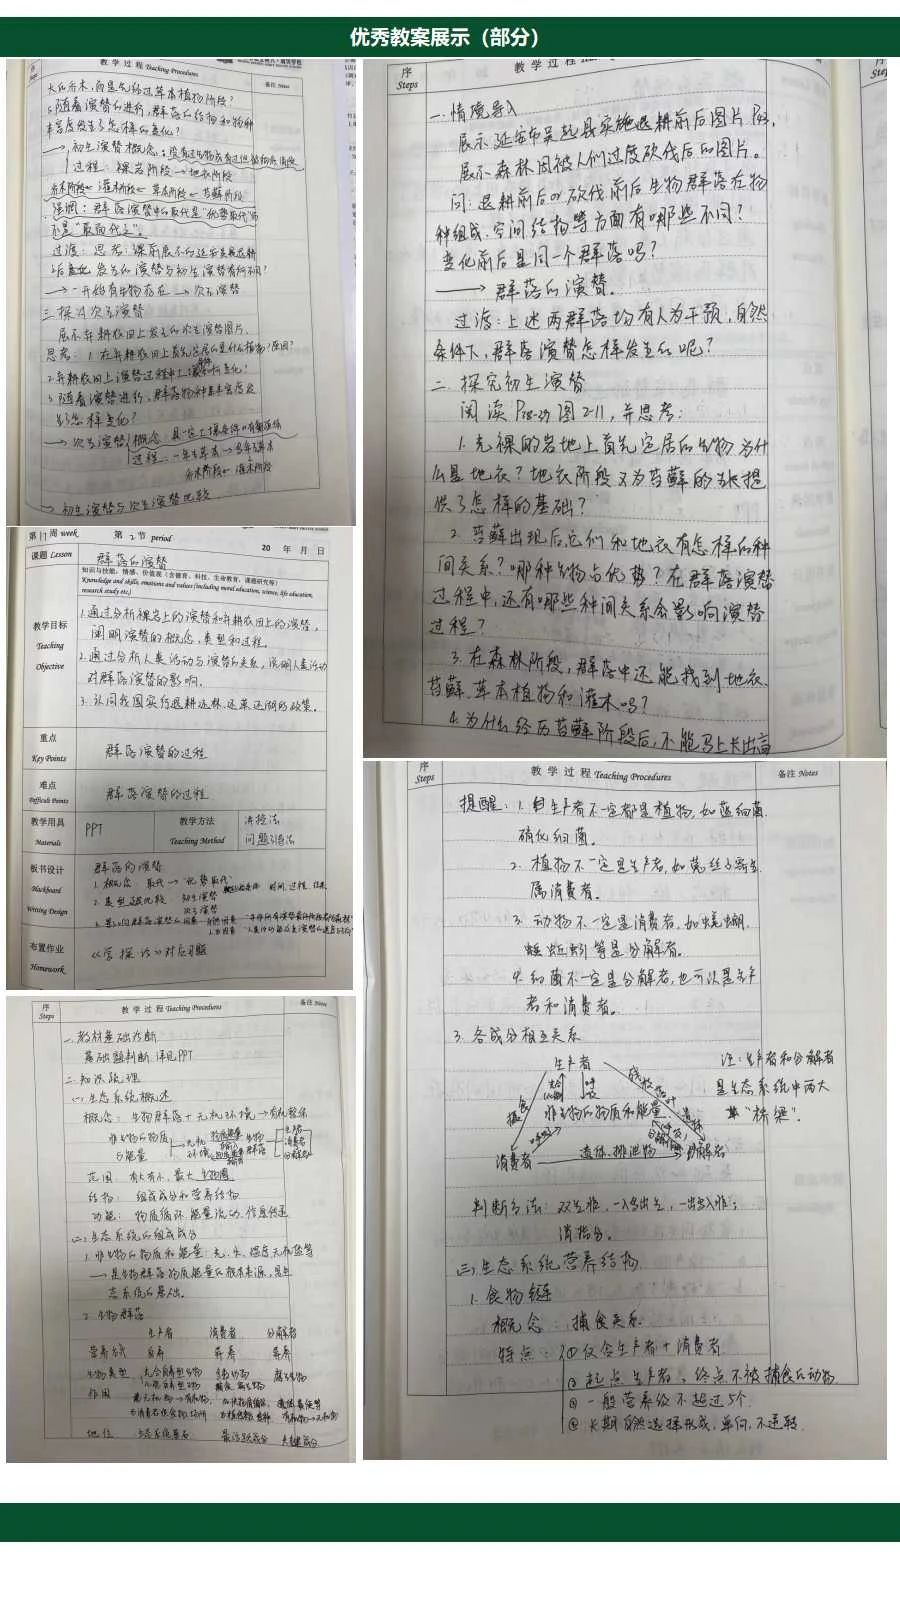 优秀教案展示（部分）
序
Steps
教 学 过 程 Teaching Procedures
备注 Notes
大的乔木，而是先经过草本植物阶段？
5.随着演替的进行，群落的结构和物种
丰富度发生了怎样的变化？
→初生演替概念：
过程：裸岩阶段→地衣阶段
乔木阶段←灌木阶段←草本阶段←苔藓阶段
强调：群落演替中的取代是“优势取代”而
不是“取而代之”。
过渡：思考：课前展示的延安吴起退耕
后变化发生的演替与初生演替有何不同？
→一开始有生物存在→次生演替
三.探究次生演替
展示弃耕农田上发生的次生演替图片，
思考：1.在弃耕农田上首先定居的是什么植物？原因？
2.弃耕农田上演替过程中土壤条件如何变化？
3.随着演替进行，群落物种丰富度发
生了怎样变化？
→次生演替
概念：具一定土壤条件
过程：一年生草本→多年生草本
乔木阶段←灌木阶段
→初生演替与次生演替比较
序
Steps
教 学 过 程
一.情境导入
展示延安市吴起县实施退耕前后图片
展示森林因被人们过度砍伐后的图片。
问：退耕前后or砍伐前后生物群落在物
种组成、空间结构等方面有哪些不同？
变化前后是同一个群落吗？
→群落的演替.
过渡：上述两群落均有人为干预，自然
条件下，群落演替怎样发生的呢？
二.探究初生演替
阅读P38-39图2-11，并思考：
1.光裸的岩地上首先定居的生物为什
么是地衣？地衣阶段又为苔藓的生长提
供了怎样的基础？
2.苔藓出现后，它们和地衣有怎样的种
间关系？哪种生物占优势？在群落演替
过程中，还有哪些种间关系会影响演替
过程？
3.在森林阶段，群落中还能找到地衣、
苔藓、草本植物和灌木吗？
4.为什么经历苔藓阶段后，不能马上长出高
第17周 week 第2节 period
20 年 月 日
课题 Lesson
群落的演替
知识与技能，情感、价值观（含德育、科技、生命教育、课题研究等）
Knowledge and skills, emotions and values(including moral education, science, life education,
research study etc.)
教学目标
Teaching
Objective
1.通过分析裸岩上的演替和弃耕农田上的演替，
阐明演替的概念，类型和过程。
2.通过分析人类活动与演替的关系，说明人类活动
对群落演替的影响。
3.认同我国实行退耕还林、还草还湖的政策。
重点
Key Points
群落演替的过程
难点
Difficult Points
群落演替的过程
教学用具
Materials
PPT
教学方法
Teaching Method
讲授法
问题引导法
板书设计
Blackboard
Writing Design
群落的演替
1.概念 取代→“优势取代”
2.类型及比较 初生演替
次生演替
时间，过程，结果
布置作业
Homework
《学探诊》对应习题
序
Steps
教 学 过 程 Teaching Procedures
备注 Notes
一.教材基础诊断
基础题判断，详见PPT
二.知识梳理
（一）生态系统概述
概念：生物群落+无机环境→有机整体
非生物的物质
与能量
无机
环境
生物
群落
生产者
消费者
分解者
范围：有大有小，最大生物圈
结构：组成成分和营养结构
功能：物质循环、能量流动、信息传递
（二）生态系统的组成成分
1.非生物的物质和能量：光、水、温度、无机盐等
→是生物群落物质能量的根本来源，是生
态系统的基础。
2.生物群落
生产者 消费者 分解者
营养方式 自养 异养 异养
作用
地位 生态系统基石 最活跃成分 关键成分
序
Steps
教 学 过 程 Teaching Procedures
备注 Notes
提醒：1.生产者不一定都是植物，如蓝细菌、
硝化细菌。
2.植物不一定是生产者，如菟丝子寄生
属消费者。
3.动物不一定是消费者，如蜣螂、
蚯蚓等是分解者。
4.细菌不一定是分解者，也可以是生产
者和消费者。
3.各成分相互关系
生产者
捕食
非生物的物质和能量
消费者
遗体、排泄物
分解者
注：生产者和分解者
是生态系统中两大
“桥梁”。
判断方法：双生非，一入多出生，一出多入非；
消指分。
三）生态系统营养结构
1.食物链
概念：捕食关系
特点：①仅含生产者+消费者
②起点生产者，终点不被捕食的动物
③一般营养级不超过5个.
④长期自然选择形成，单向，不逆转.